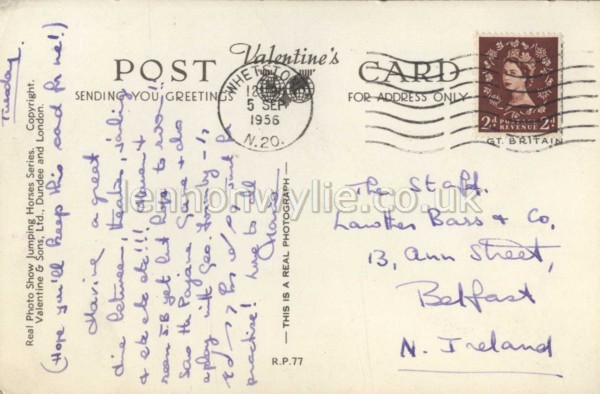 Valentine's
POST CARD
SENDING YOU GREETINGS
FOR ADDRESS ONLY
WHETSTONE
5 SEP
1956
N.20.
2d POSTAGE REVENUE 2d
GT. BRITAIN
Tuesday
(Hope you'll keep this card for me!)
Having a great
time between theatre,
& etc etc etc!!!
seen yet but hope to soon!!
Saw the Pajama Game & also
a play with Geo.
practise! Love to all
The Staff,
Lowther Bass & Co,
13, Ann Street,
Belfast
N. Ireland
Real Photo Show Jumping Horses Series. Copyright.
Valentine & Sons, Ltd., Dundee and London.
— THIS IS A REAL PHOTOGRAPH —
R.P.77
lennonwylie.co.uk